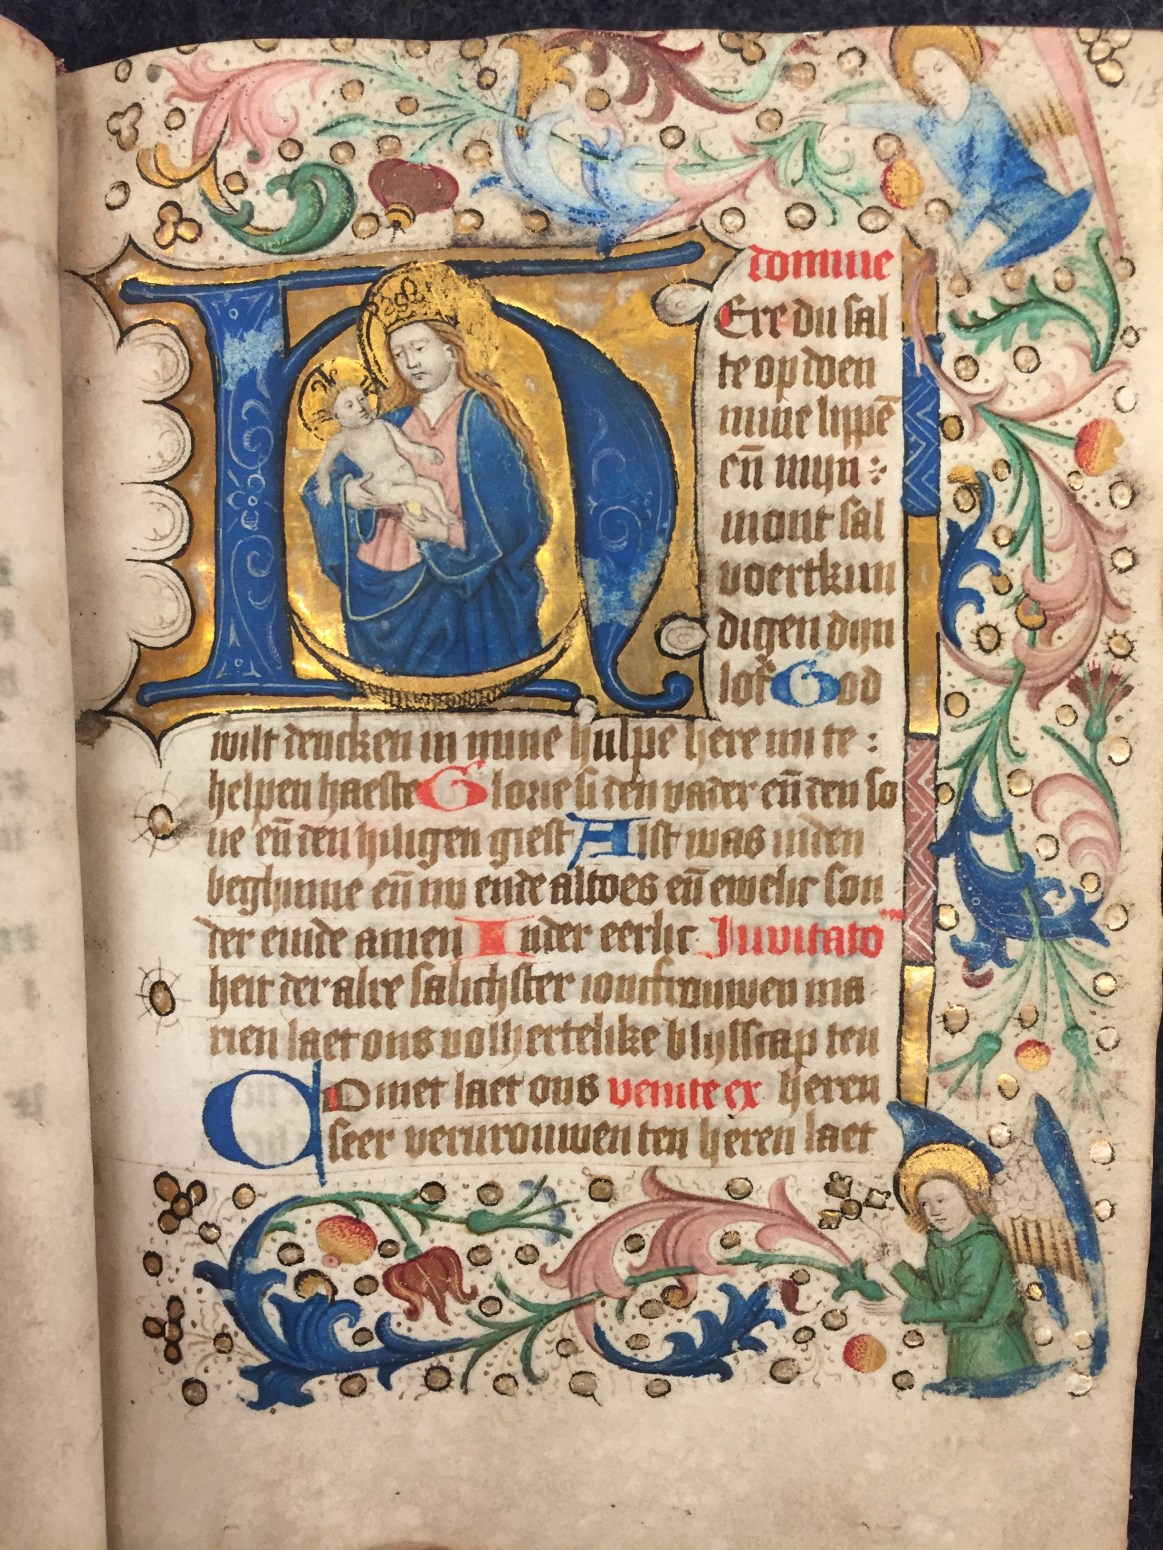 domine
H Ere du sal
te opdoen
mine lippē
eñ mijn :
mont sal
voertkun
digen dijn
lof God
wilt dencken in mine hulpe here mi te :
helpen haeste Glorie si den vader eñ den so
ne eñ den hiligen giest Alst was inden
beghinne eñ nu ende altoes eñ ewelic son
der einde amen Inder eerlic Invitato
heit der alre salichster ioncfrouwen ma
rien laet ons volhertelike blijsscap ten
Comet laet ons venite ex heren
seer vervrouwen ten heren laet